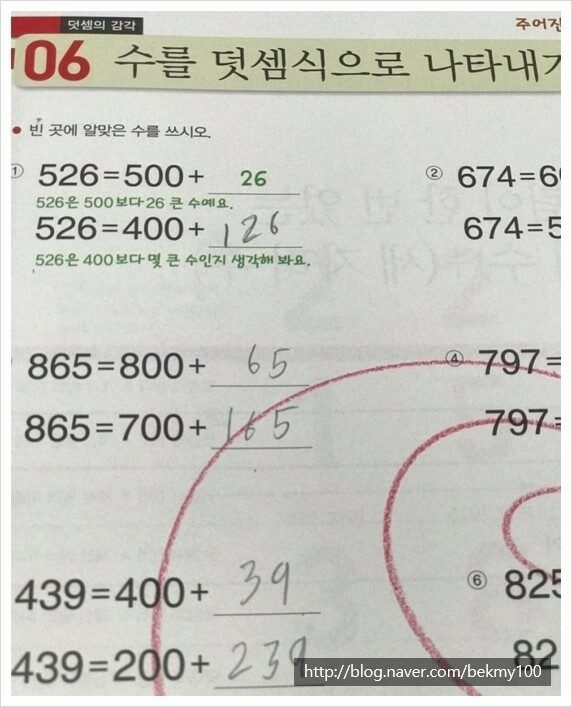 덧셈의 감각
주어진
06 수를 덧셈식으로 나타내기
빈 곳에 알맞은 수를 쓰시오.
① 526=500+ 26
526은 500보다 26 큰 수예요.
526=400+ 126
526은 400보다 몇 큰 수인지 생각해 봐요.
② 674=6
674=5
865=800+ 65
865=700+ 165
④ 797=
797=
439=400+ 39
439=200+ 239
⑥ 825
82
http://blog.naver.com/bekmy100